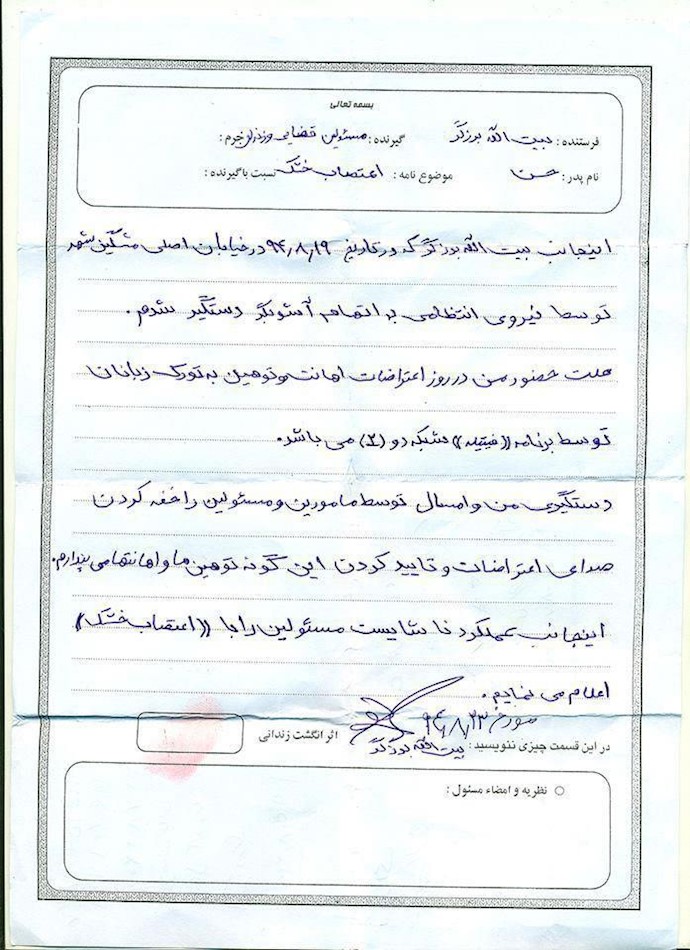 بسمه تعالی
فرستنده : بیت الله برزگر گیرنده : مسئولین قضایی و زندان جرم :
نام پدر : حسن موضوع نامه : اعتصاب خشک نسبت با گیرنده :
اینجانب بیت الله برزگر که در تاریخ ۹۴/۸/۱۹ در خیابان اصلی مشگین شهر
توسط نیروی انتظامی به اتهام آشوبگر دستگیر شدم.
علت حضور من در روز اعتراضات اهانت و توهین به تورک زبانان
توسط برنامه ((فیتیله)) شبکه دو (۲) می باشد.
دستگیری من و امسال توسط مامورین و مسئولین را خفه کردن
صدای اعتراضات و تایید کردن این گونه توهین ها و اهانتها می پندارم.
اینجانب عملکرد ناشایست مسئولین را با ((اعتصاب خشک))
اعلام می نمایم.
مورخ ۹۴/۸/۲۳
در این قسمت چیزی ننویسید : بیت الله برزگر اثر انگشت زندانی
نظریه و امضاء مسئول :